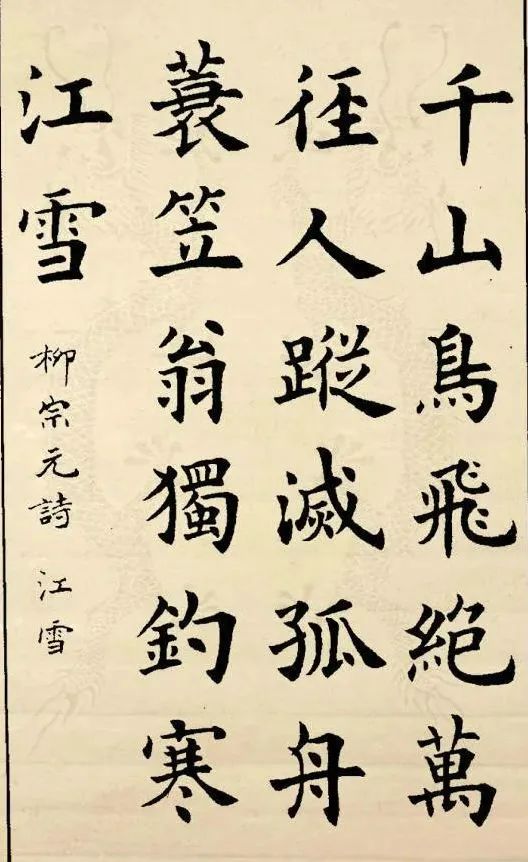 千山鳥飛絕萬
徑人蹤滅孤舟
蓑笠翁獨釣寒
江雪
柳宗元詩 江雪